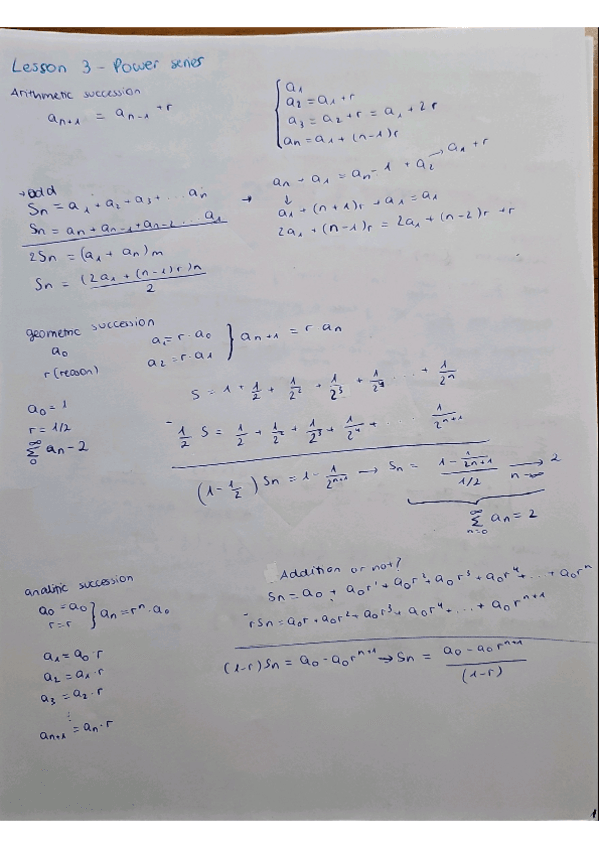 Lesson 3 - Power series
Arithmetic succession
aₙ₊₁ = aₙ₋₁ + r
{ a₁
a₂ = a₁ + r
a₃ = a₂ + r = a₁ + 2r
aₙ = a₁ + (n-1)r
→ add
Sₙ = a₁ + a₂ + a₃ + ... aₙ
Sₙ = aₙ + aₙ₋₁ + aₙ₋₂ ... a₁
2Sₙ = (a₁ + aₙ)m
Sₙ = (2a₁ + (n-1)r)n / 2
→ aₙ + a₁ = aₙ - 1 + a₂ → a₁ + r
↓
a₁ + (n+1)r + a₁ = a₁
2a₁ + (n-1)r = 2a₁ + (n-2)r + r
geometric succession
a₀
r (reason)
a₁ = r · a₀
a₂ = r · a₁ } aₙ₊₁ = r · aₙ
a₀ = 1
r = 1/2
∞ Σ 0 aₙ - 2
S = 1 + 1/2 + 1/2² + 1/2³ + 1/2⁴ ... + 1/2ⁿ
- 1/2 S = 1/2 + 1/2² + 1/2³ + 1/2⁴ + ... 1/2ⁿ⁺¹
(1 - 1/2) Sₙ = 1 - 1/2ⁿ⁺¹ → Sₙ = (1 - 1/2ⁿ⁺¹) / 1/2 → n→∞ 2
∞ Σ n=0 aₙ = 2
analitic succession
a₀ = a₀
r = r } aₙ = rⁿ · a₀
a₁ = a₀ · r
a₂ = a₁ · r
a₃ = a₂ · r
⋮
aₙ₊₁ = aₙ · r
Addition or not?
Sₙ = a₀ + a₀r¹ + a₀r² + a₀r³ + a₀r⁴ + ... + a₀rⁿ
- rSₙ = a₀r + a₀r² + a₀r³ + a₀r⁴ + ... + a₀rⁿ⁺¹
(1-r)Sₙ = a₀ - a₀rⁿ⁺¹ → Sₙ = (a₀ - a₀rⁿ⁺¹) / (1-r)
1